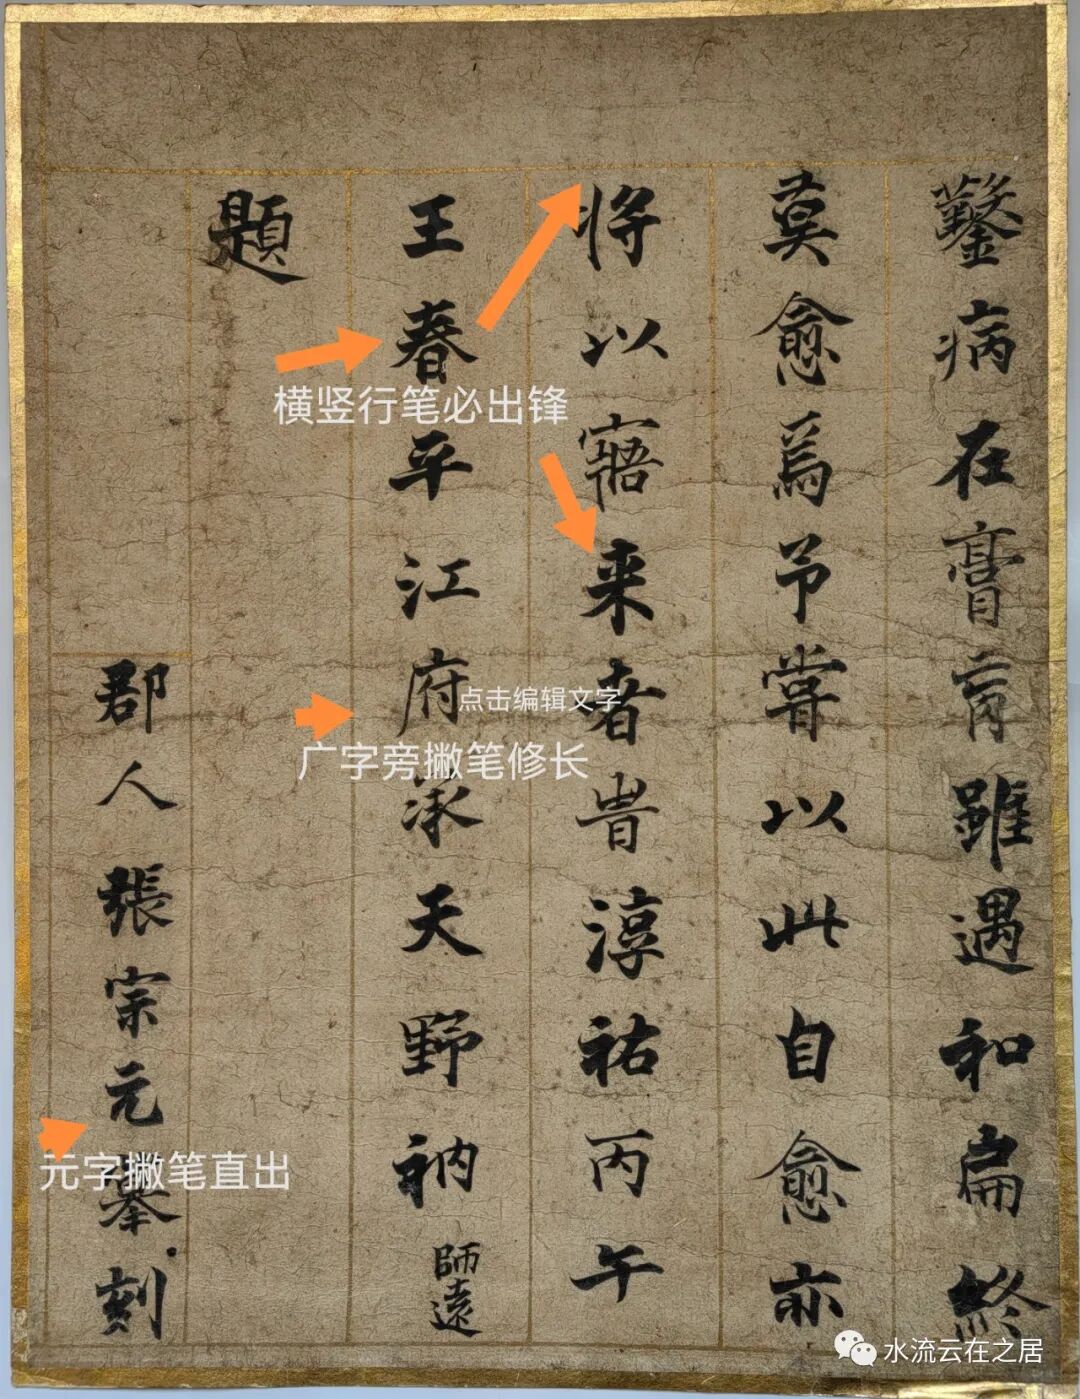 鑿病在膏肓雖遇和扁終
莫愈焉予嘗以此自愈亦
将以寤来者旹淳祐丙午
王春平江府承天野衲師遠
題
郡人張宗元摹刻
横竖行笔必出锋
点击编辑文字
广字旁撇笔修长
元字撇笔直出
水流云在之居